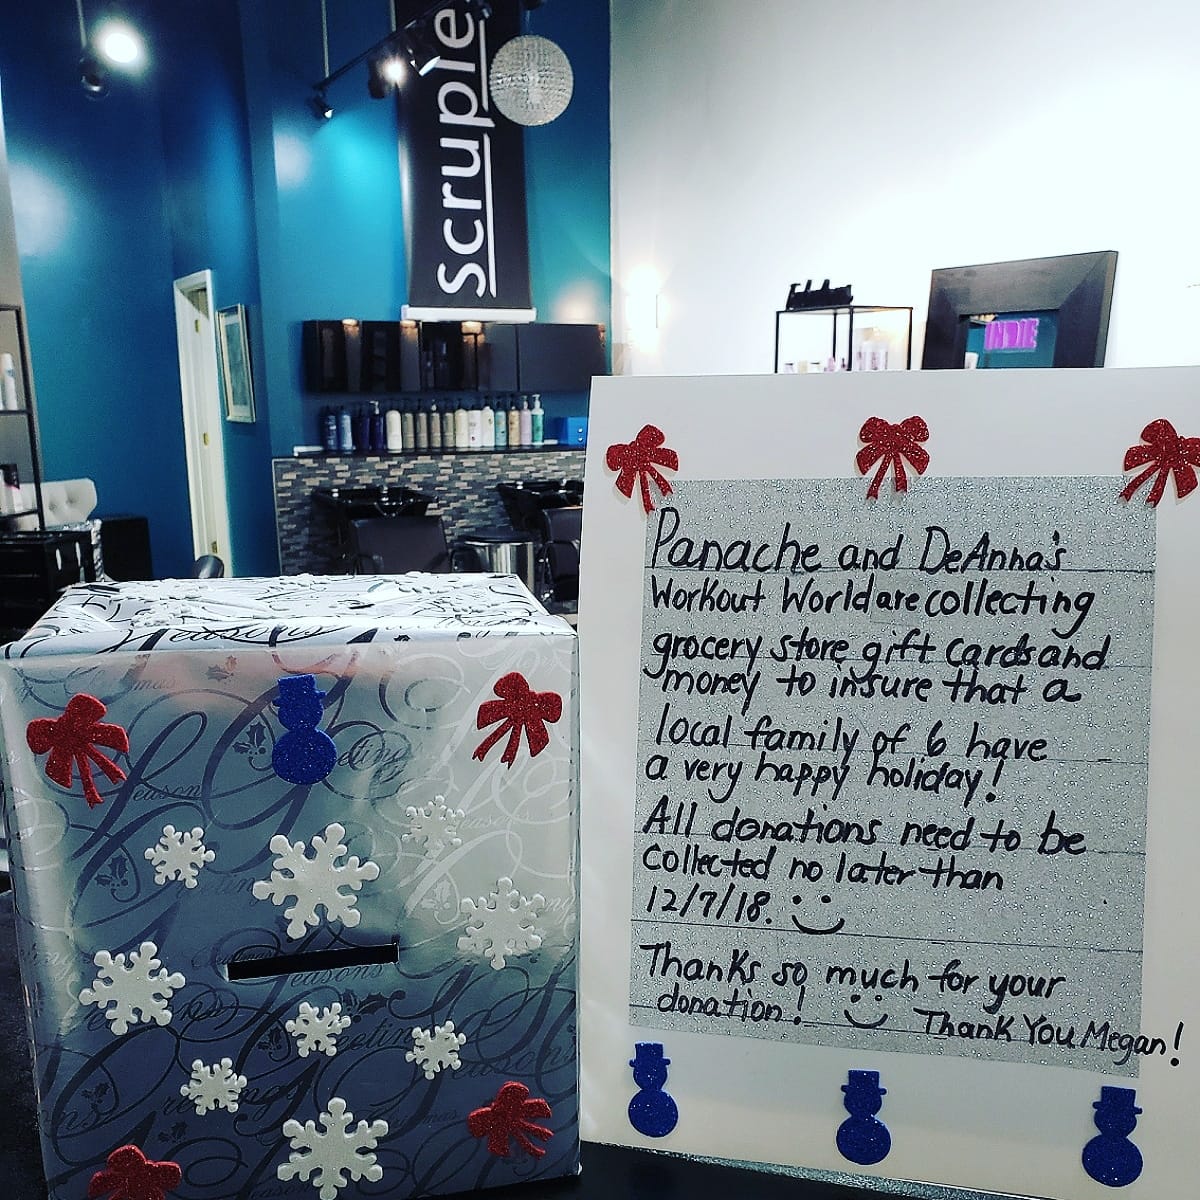 Scruple
INDIE
Panache and DeAnna's
Workout World are collecting
grocery store gift cards and
money to insure that a
local family of 6 have
a very happy holiday!
All donations need to be
collected no later than
12/7/18.
Thanks so much for your
donation!
Thank You Megan!
Seasons
Greetings
Christmas
Seasons
Greeting
Seasons
Seasons
Greetings
Seasons
Christmas